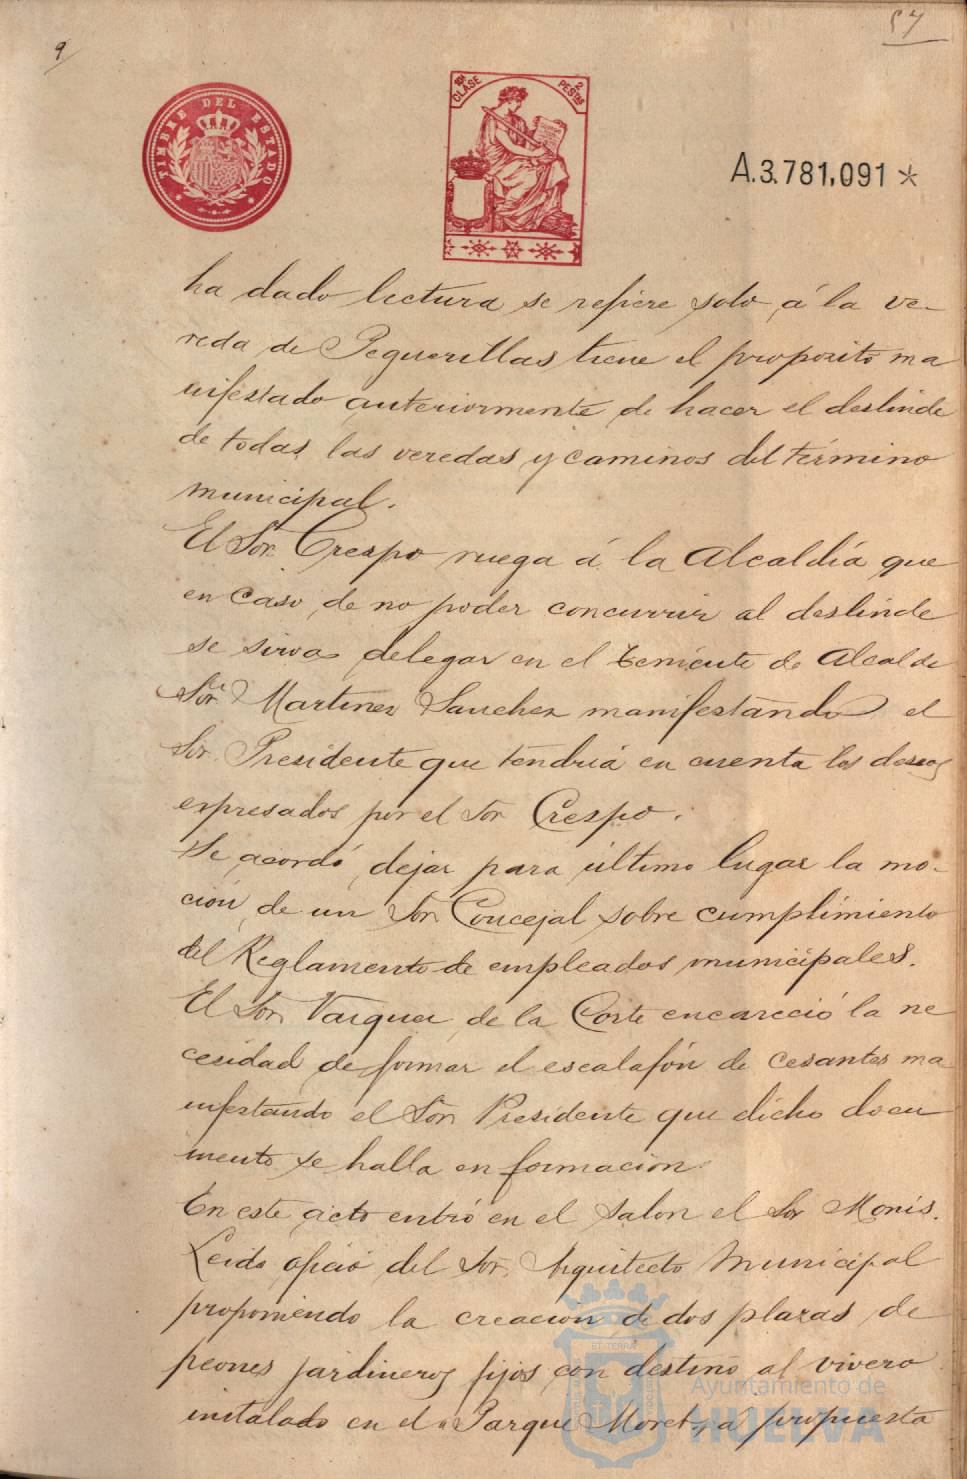 9
57
TIMBRE DEL ESTADO
10ª CLASE
2 PESTAS
A.3.781,091*
ha dado lectura se refiere solo á la ve-
reda de Peguerillas tiene el proposito ma
nifestado anteriormente de hacer el deslinde
de todas las veredas y caminos del término
municipal.
El Sor. Crespo ruega á la Alcaldía que
en caso de no poder concurrir al deslinde
se sirva delegar en el teniente de Alcalde
Sor. Martinez Sanchez manifestando el
Sor. Presidente que tendria en cuenta los deseos
expresados por el Sor Crespo.
Se acordó dejar para último lugar la mo-
ción de un Sor. Concejal sobre cumplimiento
del Reglamento de empleados municipales.
El Sor. Vazquez de la Corte encareció la ne
cesidad de formar el escalafón de cesantes ma
nifestando el Sor. Presidente que dicho docu
mento se halla en formacion.
En este acto entró en el Salon el Sor Monís.
Leido oficio del Sor. Arquitecto Municipal
proponiendo la creación de dos plazas de
peones jardineros fijos con destino al vivero
instalado en el Parque Moret, á propuesta
Ayuntamiento de
HUELVA